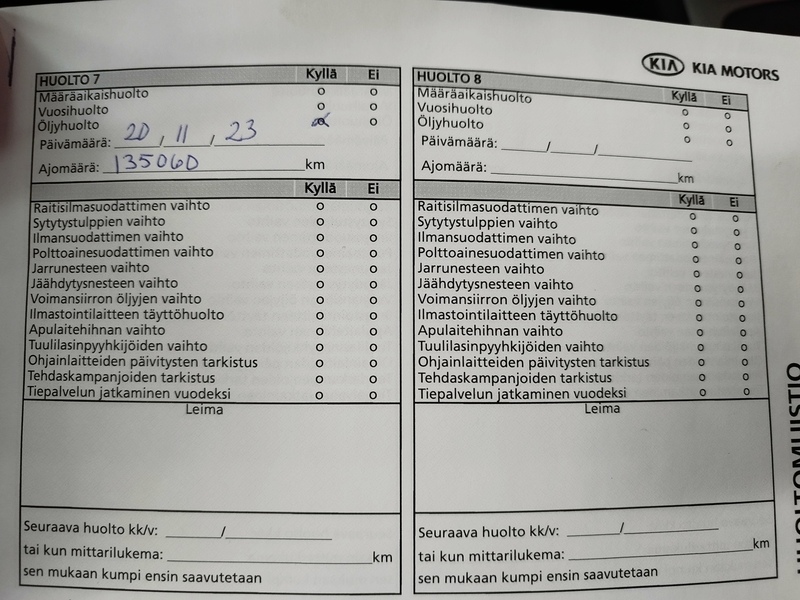 KIA KIA MOTORS
HUOLTO 7 Kyllä Ei
Määräaikaishuolto o o
Vuosihuolto o o
Öljyhuolto o o
Päivämäärä: 20 / 11 / 23
Ajomäärä: 135060 km
Kyllä Ei
Raitisilmasuodattimen vaihto o o
Sytytystulppien vaihto o o
Ilmansuodattimen vaihto o o
Polttoainesuodattimen vaihto o o
Jarrunesteen vaihto o o
Jäähdytysnesteen vaihto o o
Voimansiirron öljyjen vaihto o o
Ilmastointilaitteen täyttöhuolto o o
Apulaitehihnan vaihto o o
Tuulilasinpyyhkijöiden vaihto o o
Ohjainlaitteiden päivitysten tarkistus o o
Tehdaskampanjoiden tarkistus o o
Tiepalvelun jatkaminen vuodeksi o o
Leima
Seuraava huolto kk/v: ______/____________
tai kun mittarilukema: ____________ km
sen mukaan kumpi ensin saavutetaan
HUOLTO 8 Kyllä Ei
Määräaikaishuolto o o
Vuosihuolto o o
Öljyhuolto o o
Päivämäärä: ______/______/____________
Ajomäärä: ____________ km
Kyllä Ei
Raitisilmasuodattimen vaihto o o
Sytytystulppien vaihto o o
Ilmansuodattimen vaihto o o
Polttoainesuodattimen vaihto o o
Jarrunesteen vaihto o o
Jäähdytysnesteen vaihto o o
Voimansiirron öljyjen vaihto o o
Ilmastointilaitteen täyttöhuolto o o
Apulaitehihnan vaihto o o
Tuulilasinpyyhkijöiden vaihto o o
Ohjainlaitteiden päivitysten tarkistus o o
Tehdaskampanjoiden tarkistus o o
Tiepalvelun jatkaminen vuodeksi o o
Leima
Seuraava huolto kk/v: ______/____________
tai kun mittarilukema: ____________ km
sen mukaan kumpi ensin saavutetaan
HUOLTOMUISTIO